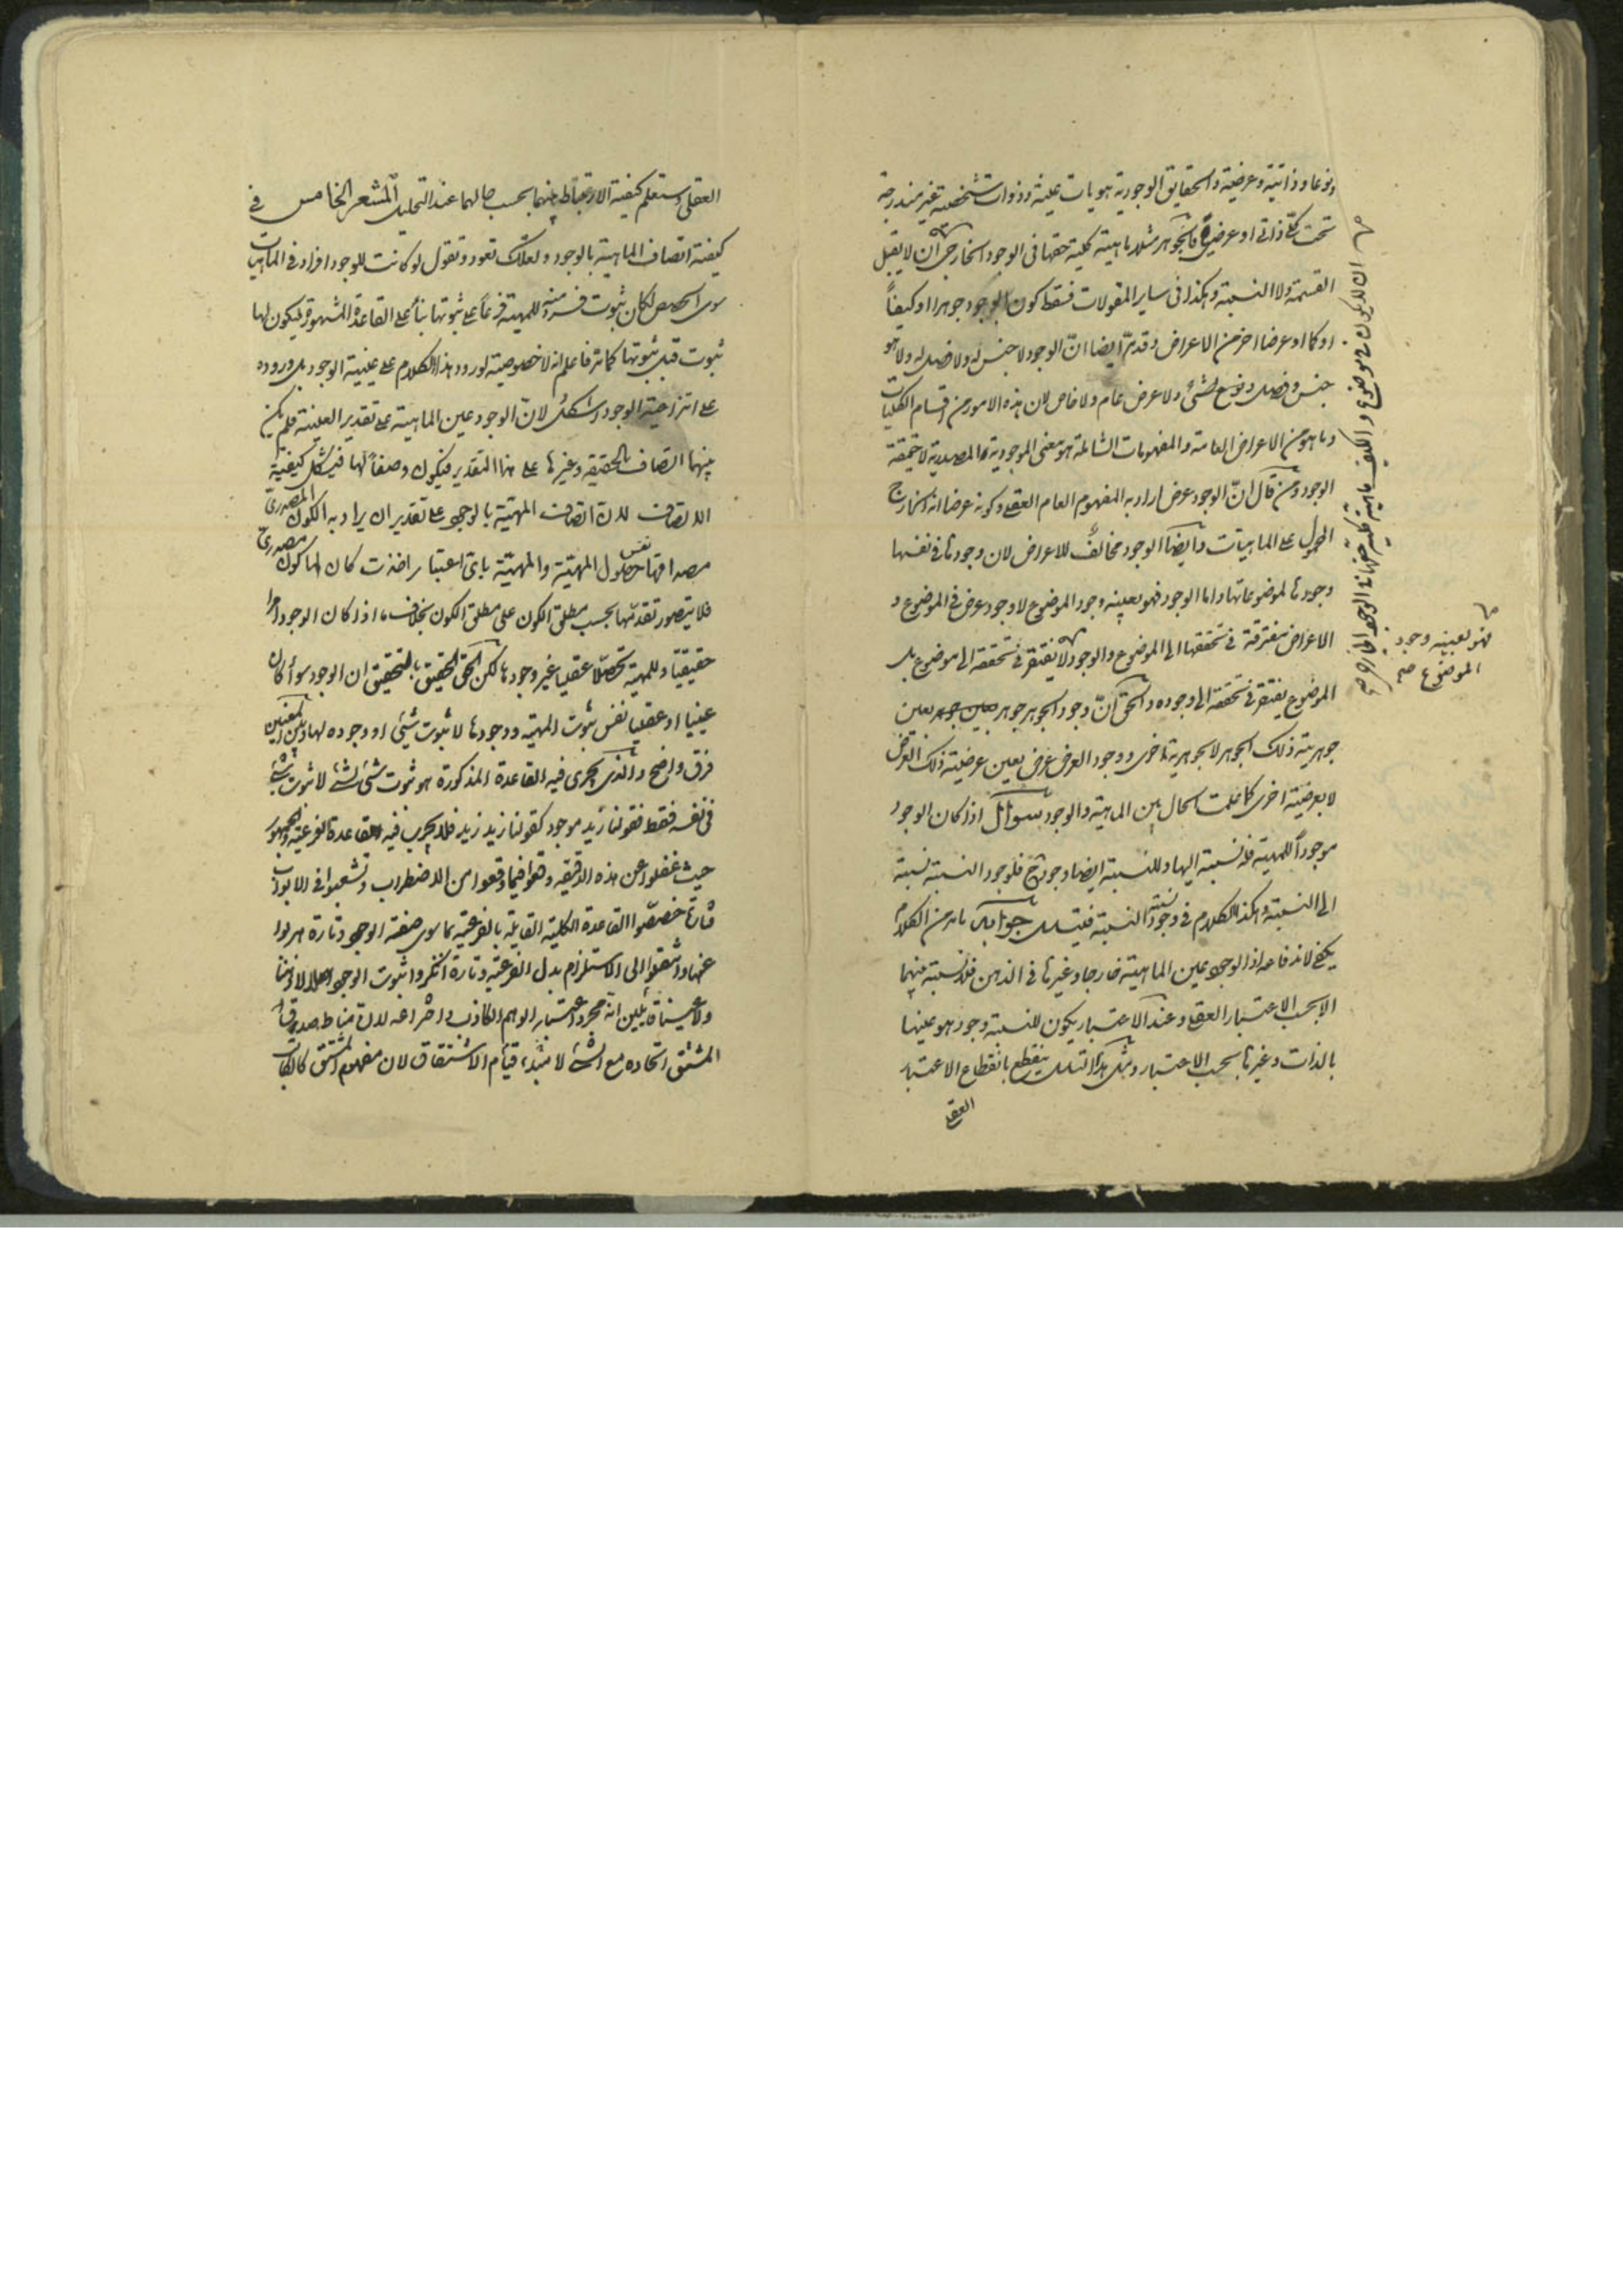 ونوعا وذاتية وعرضية والحقايق الوجودية هويات عينية وذوات شخصية غير مندرجة
تحت كلي ذاتي او عرضي فالجوهر مثلا ماهية كلية حقها في الوجود الخارجي ان لا يقبل
القسمة ولا النسبة وهكذا في ساير المقولات فسقط كون الوجود جوهرا او كيفاً
او كما او عرضا اخر من الاعراض وقد مرّ ايضا انّ الوجود لا جنس له ولا فصل له ولا هو
جنس وفصل ونوع لشئ ولا عرض عام ولا خاص لان هذه الامور من اقسام الكليات
وما هو من الاعراض العامة والمفهومات الشاملة هو معنى الموجودية المصدرية لا حقيقة
الوجود ومن قال انّ الوجود عرض اراد به المفهوم العام العقلي وكونه عرضا انه الخارج
المحمول على الماهيات وايضا الوجود مخالفٌ للاعراض لان وجودها في نفسها
وجودها لموضوعاتها واما الوجود فهو بعينه وجود الموضوع لا وجود عرض في الموضوع و
الاعراض مفترقة في تحققها الى الموضوع والوجود لا يفتقر في تحققه الى موضوع بل
الموضوع يفتقر في تحققه الى وجوده والحق انّ وجود الجوهر جوهر بعين جوهر بعين
جوهرية ذلك الجوهر لا بجوهرية اخرى ووجود العرض عرض بعين عرضية ذلك العرض
لا بعرضية اخرى كما علمت الحال بين الماهية والوجود سوال اذا كان الوجود
موجوداً للمهية فله نسبة اليها وللنسبة ايضا وجود ح فلوجود النسبة نسبة
الى النسبة وهكذا الكلام في وجود نسبة النسبة فيتسلسل جواب ما مر من الكلام
يكفي لاندفاعه اذ الوجود عين الماهية خارجا وغيرها في الذهن فلا نسبة بينهما
الا بحسب الاعتبار العقلي وعند الاعتبار يكون للنسبة وجود هو عينها
بالذات وغيرها بحسب الاعتبار ومثل هذا التسلسل ينقطع بانقطاع الاعتبار
العقلي
فهو بعينه وجود
الموضوع صح
العقلي وستعلم كيفية الارتباط بينهما بحسب حالهما عند التحليل المشعر الخامس في
كيفية اتصاف الماهية بالوجود ولعلك تعود وتقول لو كانت للوجود افراد في الماهيات
سوى الحصص لكان ثبوت فرد منه للمهية فرعاً على ثبوتها بناءً على القاعدة المشهورة فيكون لها
ثبوت قبل ثبوتها كما مر فاعلم انه لا خصوصية لورود هذا الكلام على عينية الوجود بل وروده
على انتزاعية الوجود اشكل لانّ الوجود عين الماهية على تقدير العينية فلم يكن
بينهما اتصاف بالحقيقة وغيرها على هذا التقدير فيكون وصفاً لها فيشكل كيفية
الاتصاف لان اتصاف المهية بالوجود على تقدير ان يراد به الكون المصدري
مصداقها نفس حصول المهية والمهية باى اعتبار اخذت كان لها كون مصدري
فلا يتصور تقدمها بحسب مطلق الكون على مطلق الكون بخلاف ما اذا كان الوجود امرا
حقيقيا وللمهية تحصّلا عقليا غير وجودها لكن الحق الحقيق بالتحقيق ان الوجود سواء كان
عينيا او عقليا نفس ثبوت المهية ووجودها لا ثبوت شئ او وجوده لها وبين المعنيين
فرق واضح والذى يجرى فيه القاعدة المذكورة هو ثبوت شئ لشئ لا ثبوت شئ
في نفسه فقط فقولنا زيد موجود كقولنا زيد زيد فلا يجرى فيه القاعدة الفرعية والجمهور
حيث غفلوا عن هذه الدقيقة وقعوا فيما وقعوا من الاضطراب وتشعبوا في الابواب
فتارة خصصّوا القاعدة الكلية القايلة بالفرعية بما سوى صفة الوجود وتارة هربوا
عنها وانتقلوا الى الاستلزام بدل الفرعية وتارة انكروا ثبوت الوجود اصلا لا ذهنا
ولا عينا قايلين انه مجرد اعتبار الوهم الكاذب واختراعه لان مناط صدق
المشتق اتحاده مع الشئ لا مبداء قيام الاشتقاق لان مفهوم المشتق كالكاتب